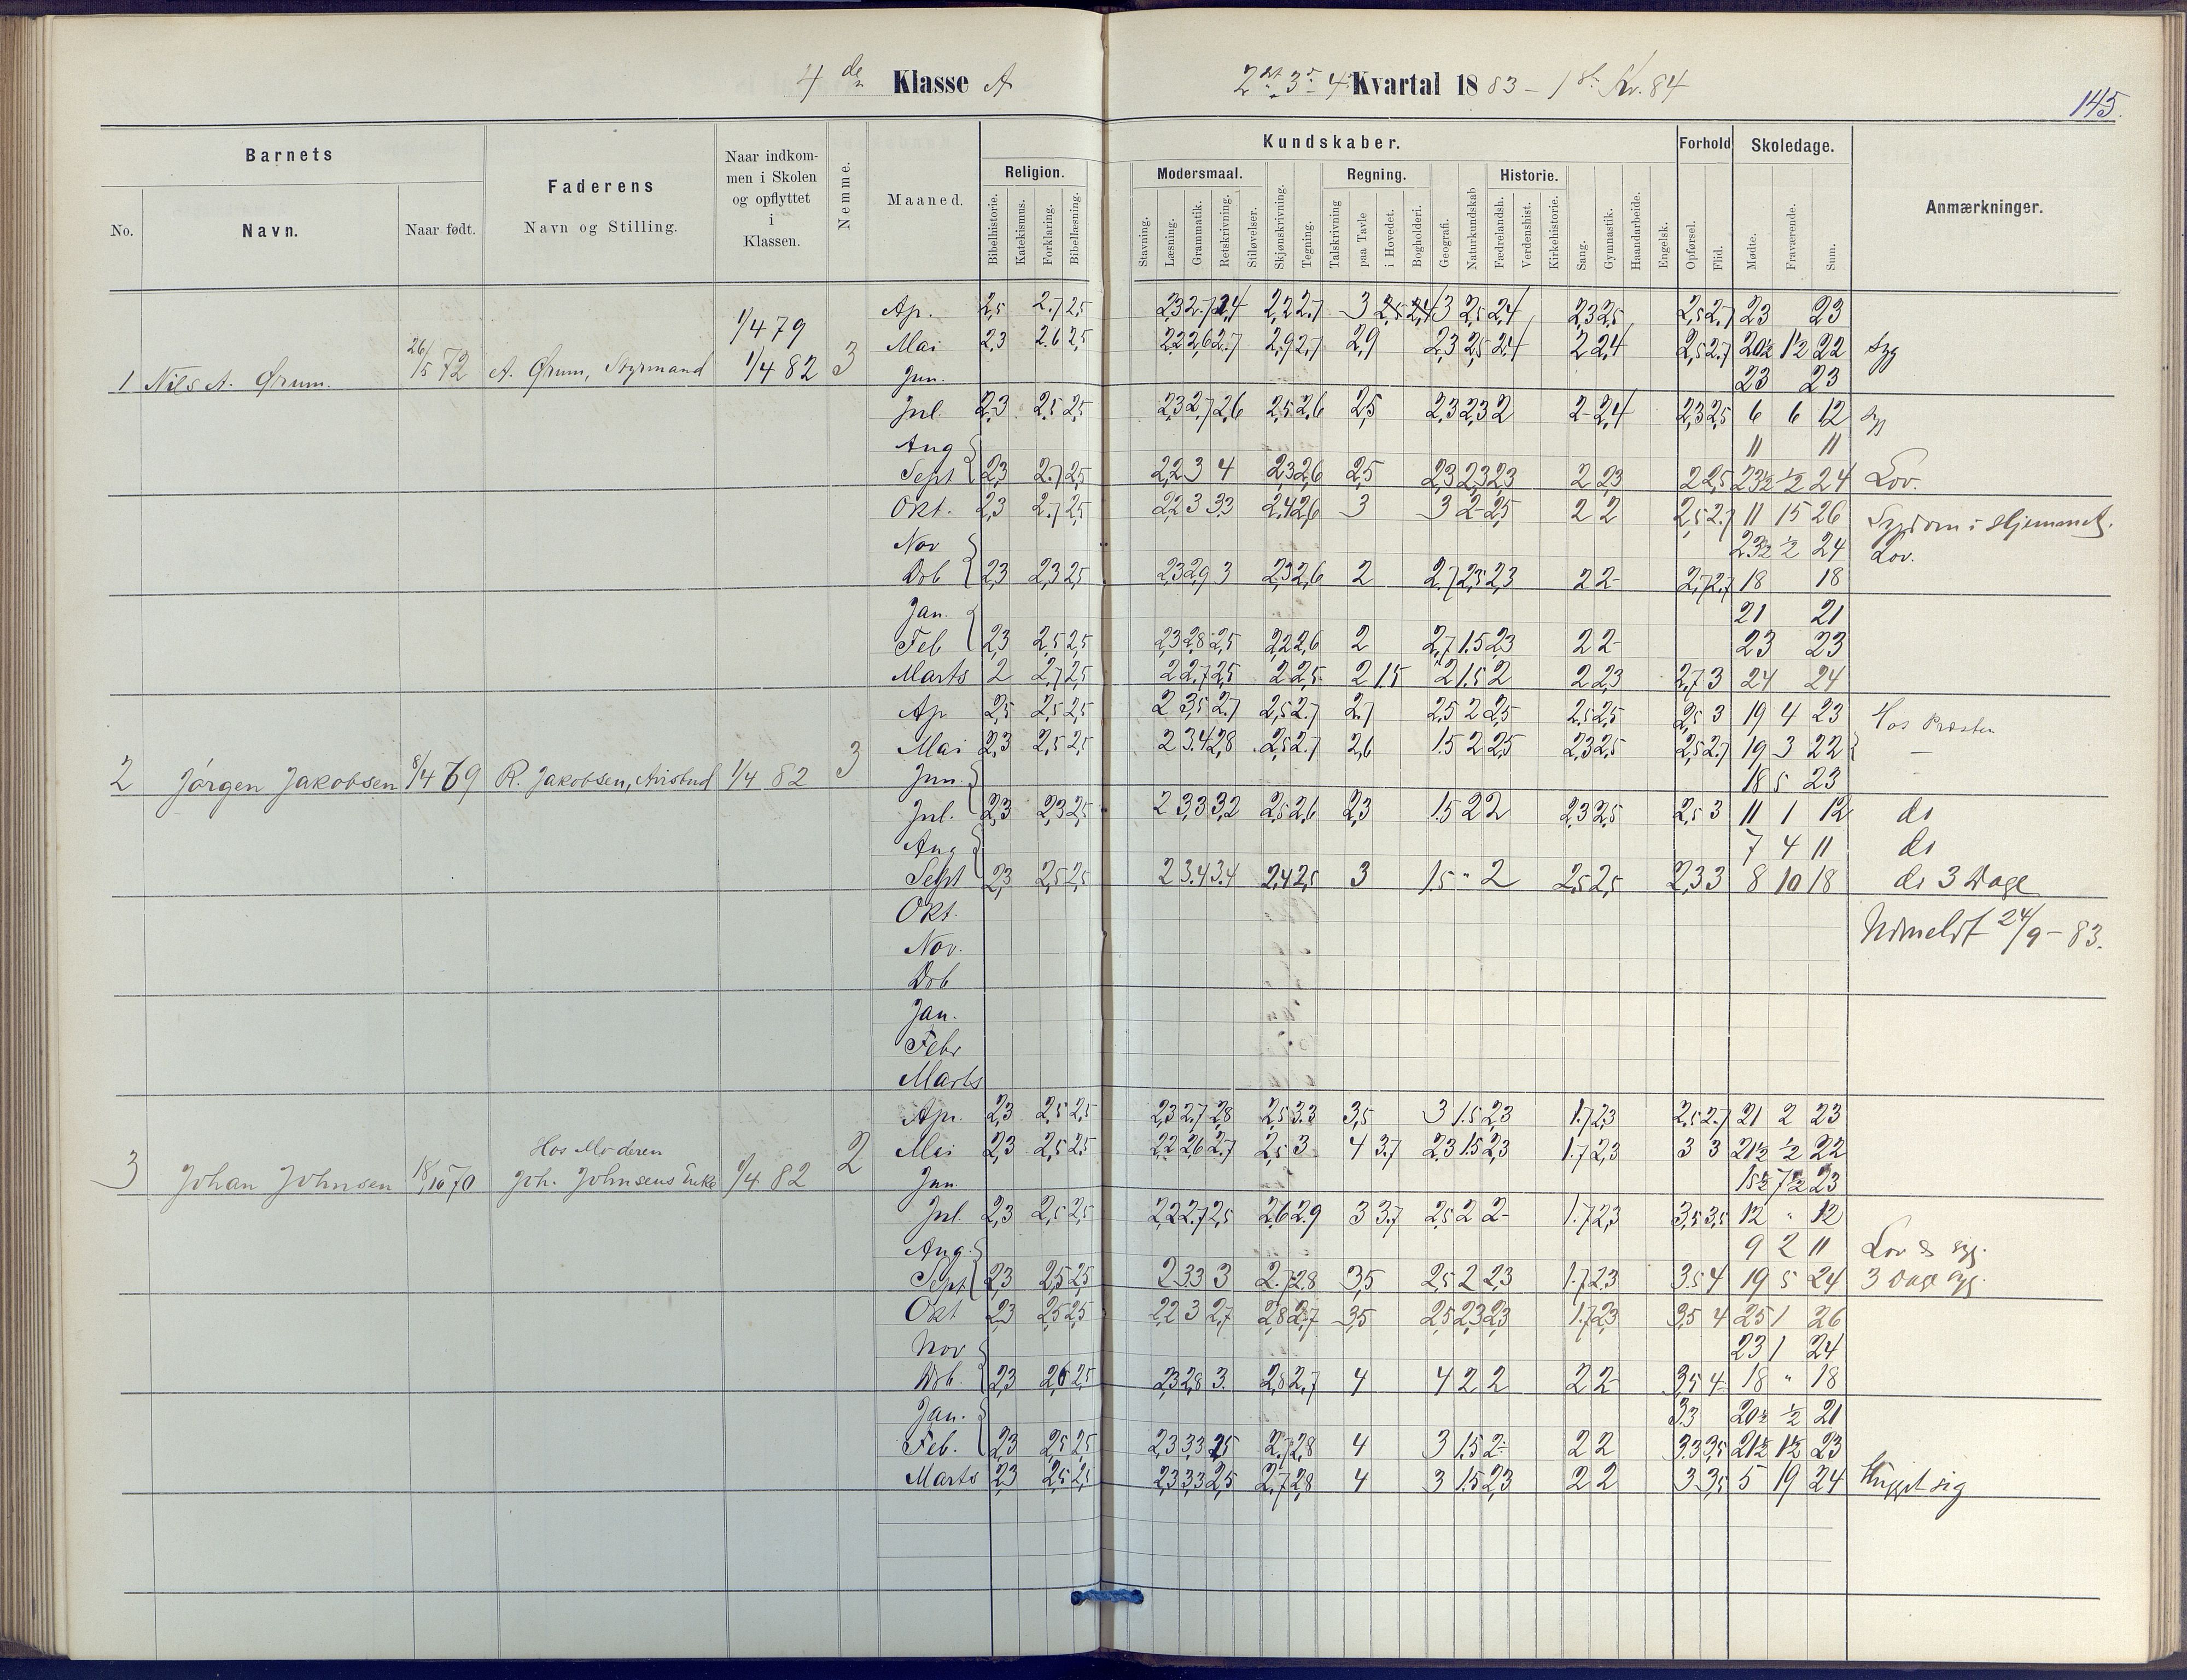 4de Klasse A
2det 3- 4 Kvartal 1883 - 1st Kv. 84
145.
Barnets
No.
Navn.
Naar født.
Faderens
Navn og Stilling.
Naar indkom-
men i Skolen
og opflyttet
i
Klassen.
Nemme.
Maaned.
Kundskaber.
Religion.
Bibelhistorie.
Katekismus.
Forklaring.
Bibellæsning.
Modersmaal.
Stavning.
Læsning.
Grammatik.
Retskrivning.
Stiløvelser.
Skjønskrivning.
Tegning.
Regning.
Talskrivning
paa Tavle
i Hovedet.
Bogholderi.
Geografi.
Naturkundskab
Historie.
Fædrelandsh.
Verdenshist.
Kirkehistorie.
Sang.
Gymnastik.
Haandarbeide.
Engelsk.
Forhold
Opførsel.
Flid.
Skoledage.
Mødte.
Fraværende.
Sum.
Anmærkninger.
1 Nils A. Ørum. 26/5 72 A. Ørum, Styrmand 1/4 79 1/4 82 3
Ap. 2,5 2.7 2,5 2,3 2.7 2,4 2,2 2.7 3 2,5 2,4 3 2,5 2,4 2,3 2,5 2,5 2.7 23 23
Mai 2,3 2.6 2,5 2,2 2,6 2.7 2,9 2,7 2,9 2,3 2,5 2,4 2 2,4 2,5 2.7 20½ 1½ 22 Syg
Jun. 23 23
Jul. 2,3 2,5 2,5 2,3 2,7 2,6 2,5 2,6 2,5 2,3 2,3 2 2 2,4 2,3 2,5 6 6 12 Syg
Aug 11 11
Sept 2,3 2.7 2,5 2,2 3 4 2,3 2,6 2,5 2,3 2,3 2,3 2 2,3 2 2,5 23½ ½ 24 Lov.
Okt. 2,3 2.7 2,5 2,2 3 3,3 2,4 2,6 3 3 2 2,5 2 2 2,5 2.7 11 15 26 Sygdom i Hjemmet.
Nov 23½ ½ 24 Lov.
Dcb 2,3 2,3 2,5 2,3 2,9 3 2,3 2,6 2 2.7 2,5 2,3 2 2 2,7 2,7 18 18
Jan. 21 21
Feb 2,3 2,5 2,5 2,3 2,8 2,5 2,2 2,6 2 2,7 1.5 2,3 2 2 23 23
Marts 2 2,7 2,5 2 2,7 2,5 2 2,5 2 1.5 2 1.5 2 2 2,3 2,7 3 24 24
2 Jörgen Jakobsen 8/4 69 R. Jakobsen, Avisbud 1/4 82 3
Ap 2,5 2,5 2,5 2 3,5 2.7 2,5 2.7 2.7 2.5 2 2,5 2,5 2,5 2,5 3 19 4 23 Hos Præsten
Mai 2,3 2,5 2,5 2 3.4 2,8 2,5 2.7 2,6 1.5 2 2,5 2,3 2,5 2,5 2.7 19 3 22 —
Jun. 18 5 23 -
Jul. 2,3 2,3 2,5 2 3,3 3,2 2,5 2,6 2,3 1.5 2 2 2,3 2,5 2,5 3 11 1 12 do
Aug 7 4 11 do
Sept 2,3 2,5 2,5 2 3.4 3.4 2,4 2,5 3 1.5 " 2 2,5 2,5 2,3 3 8 10 18 do 3 Dage
Okt. Udmeldt 24/9 - 83.
Nov.
Dcb
Jan.
Febr
Marts
3 Johan Johnsen 18/10 70 Hos Moderen
Joh. Johnsens Enke 1/4 82 2
Apr. 2,3 2,5 2,5 2,3 2,7 2,8 2,5 3.3 3,5 3 1.5 2,3 1.7 2,3 2,5 2.7 21 2 23
Mai 2,3 2,5 2,5 2,2 2,6 2.7 2,5 3 4 3.7 2,3 1.5 2,3 1.7 2,3 3 3 21½ ½ 22
Jun. 15½ 7½ 23
Jul. 2,3 2,5 2,5 2,2 2.7 2,5 2,6 2.9 3 3.7 2,5 2 2 1.7 2,3 3,5 3,5 12 " 12
Aug. 9 2 11 Lov & syg.
Sept 2,3 2,5 2,5 2 3,3 3 2.7 2,8 3,5 2,5 2 2,3 1.7 2,3 3.5 4 19 5 24 3 Dage syg.
Okt 2,3 2,5 2,5 2,2 3 2,7 2,8 2,7 3,5 2,5 2,3 2,3 1.7 2,3 3,5 4 25 1 26
Nov 23 1 24
Dcb. 2,3 2,6 2,5 2,3 2,8 3. 2,8 2,7 4 4 2 2 2 2 3,5 4 18 " 18
Jan. 3.3 20½ ½ 21
Feb. 2,3 2,5 2,5 2,3 3,3 2,5 2.7 2,8 4 3 1.5 2 2 2 3.3 3,5 21½ 1½ 23
Marts 2,3 2,5 2,5 2,3 3,3 2,5 2,7 2,8 4 3 1.5 2,3 2 2 3 3,5 5 19 24 Hugget sig